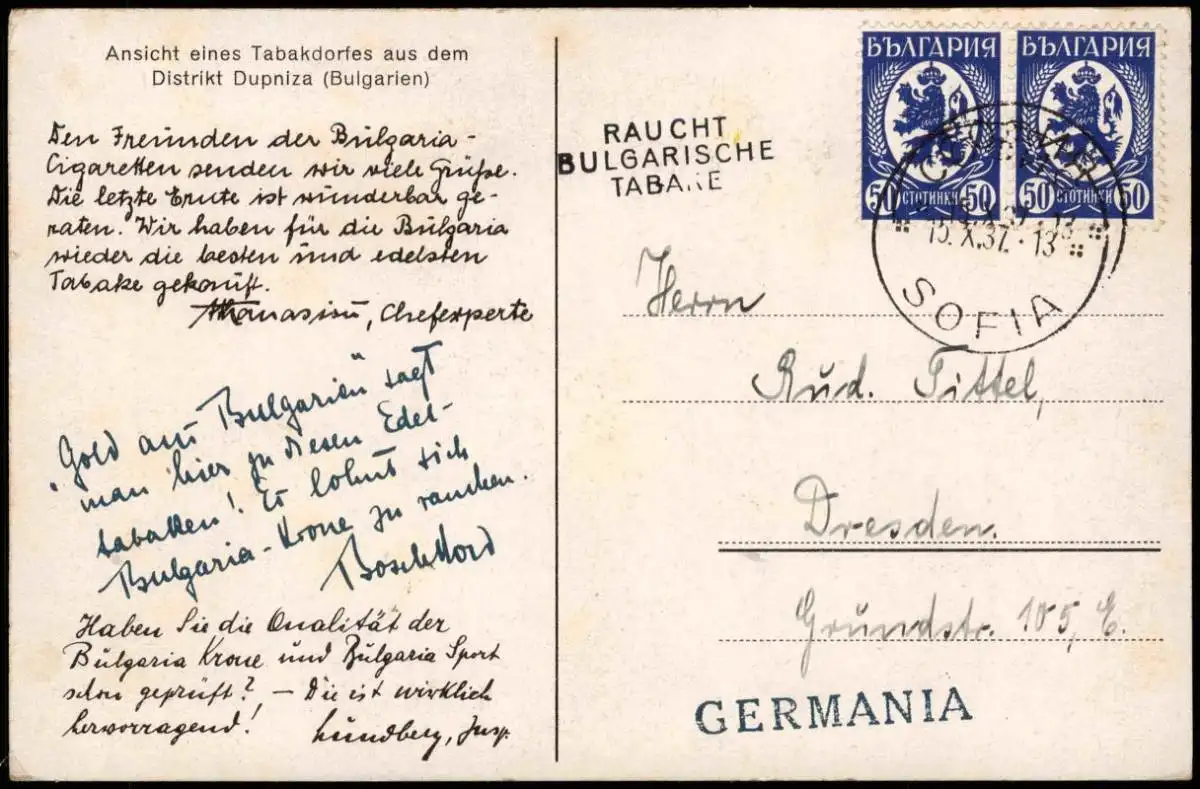 Ansicht eines Tabakdorfes aus dem
Distrikt Dupniza (Bulgarien)
Den Freunden der Bulgaria-
Cigaretten senden wir viele Grüße.
Die letzte Ernte ist wunderbar ge-
raten. Wir haben für die Bulgaria
wieder die besten und edelsten
Tabake gekauft.
Athanasiou, Chefexperte
"Gold aus Bulgarien" sagt
man hier zu diesen Edel-
tabakken! Es lohnt sich
Bulgaria-Krone zu rauchen.
Haben Sie die Qualität der
Bulgaria Krone und Bulgaria Sport
schon geprüft? – Die ist wirklich
hervorragend!
Lundberg, Insp.
RAUCHT
BULGARISCHE
TABAKE
БЪЛГАРИЯ БЪЛГАРИЯ
50 СТОТИНКИ 50 50 СТОТИНКИ 50
15.X.37.-13
SOFIA
Herrn
Rud. Tittel,
Dresden.
Grundstr. 105, E.
GERMANIA